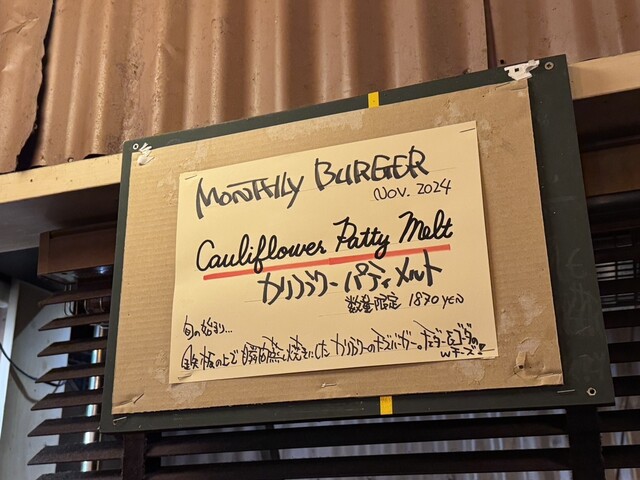 MONTHLY BURGER
NOV. 2024
Cauliflower Patty Melt
カリフラワー パティメルト
数量限定 1870 YEN
旬の始まり...
鉄板の上で瞬間蒸し焼きにした カリフラワーのチーズバーガー。チェダー&ゴーダの
Wチーズ!